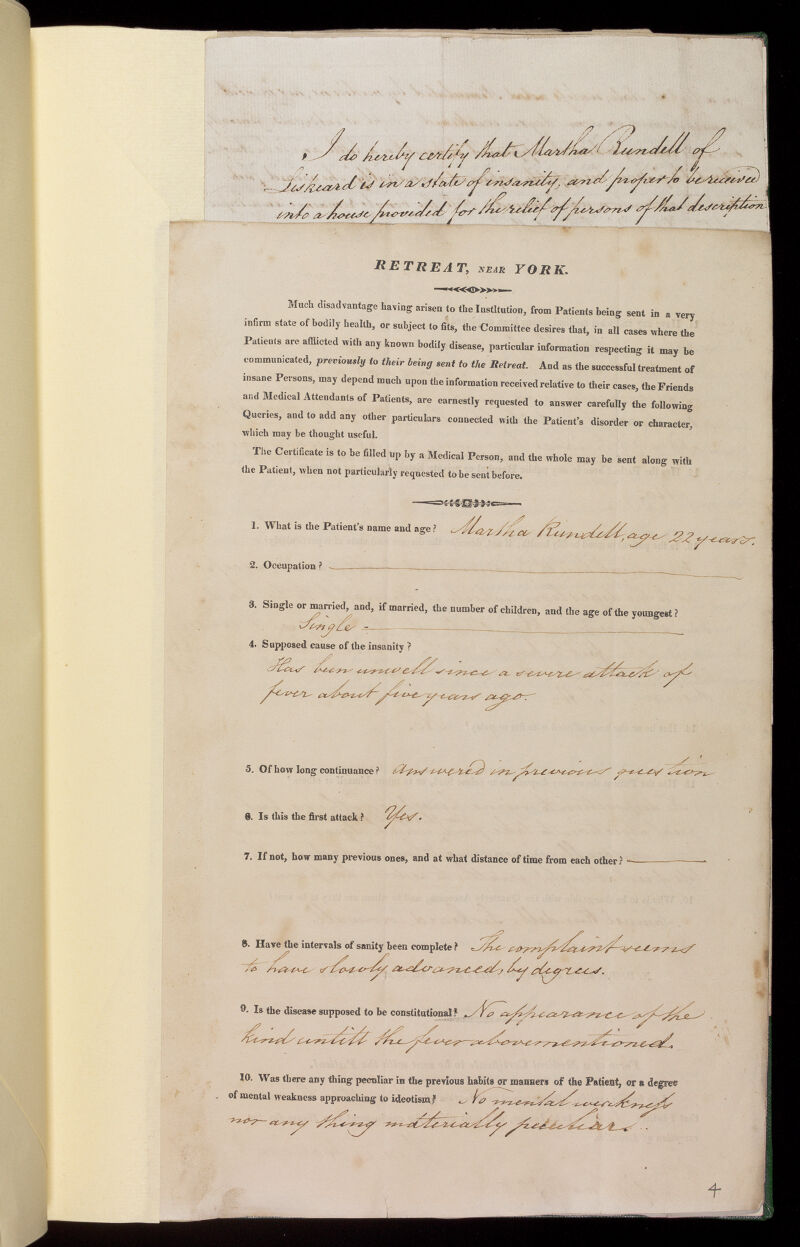 I do hereby certify that Martha Rundell of
Liskeard is in a state of insanity, and proper to be received
into a house provided for the relief of persons of that description
RETREAT, NEAR YORK.
Much disadvantage having arisen to the Institution, from Patients being sent in a very
infirm state of bodily health, or subject to fits, the Committee desires that, in all cases where the
Patients are afflicted with any known bodily disease, particular information respecting it may be
communicated, previously to their being sent to the Retreat. And as the successful treatment of
insane Persons, may depend much upon the information received relative to their cases, the Friends
and Medical Attendants of Patients, are earnestly requested to answer carefully the following
Queries, and to add any other particulars connected with the Patient's disorder or character,
which may be thought useful.
The Certificate is to be filled up by a Medical Person, and the whole may be sent along with
the Patient, when not particularly requested to be sent before.
1. What is the Patient's name and age? Martha Rundell, age 22 years.
2. Occupation?
3. Single or married, and, if married, the number of children, and the age of the youngest?
Single -
4. Supposed cause of the insanity?
Has been unwell since a severe attack of
fever about five years ago.
5. Of how long continuance? Answered in previous question
6. Is this the first attack? Yes.
7. If not, how many previous ones, and at what distance of time from each other?
8. Have the intervals of sanity been complete? The complaint seems
to have slowly advanced, by degrees.
9. Is the disease supposed to be constitutional? No appearance of the
kind untill the fever abovementioned.
10. Was there any thing peculiar in the previous habits or manners of the Patient, or a degree
of mental weakness approaching to ideotism? No mental weakness
nor any thing materially peculiar.
4